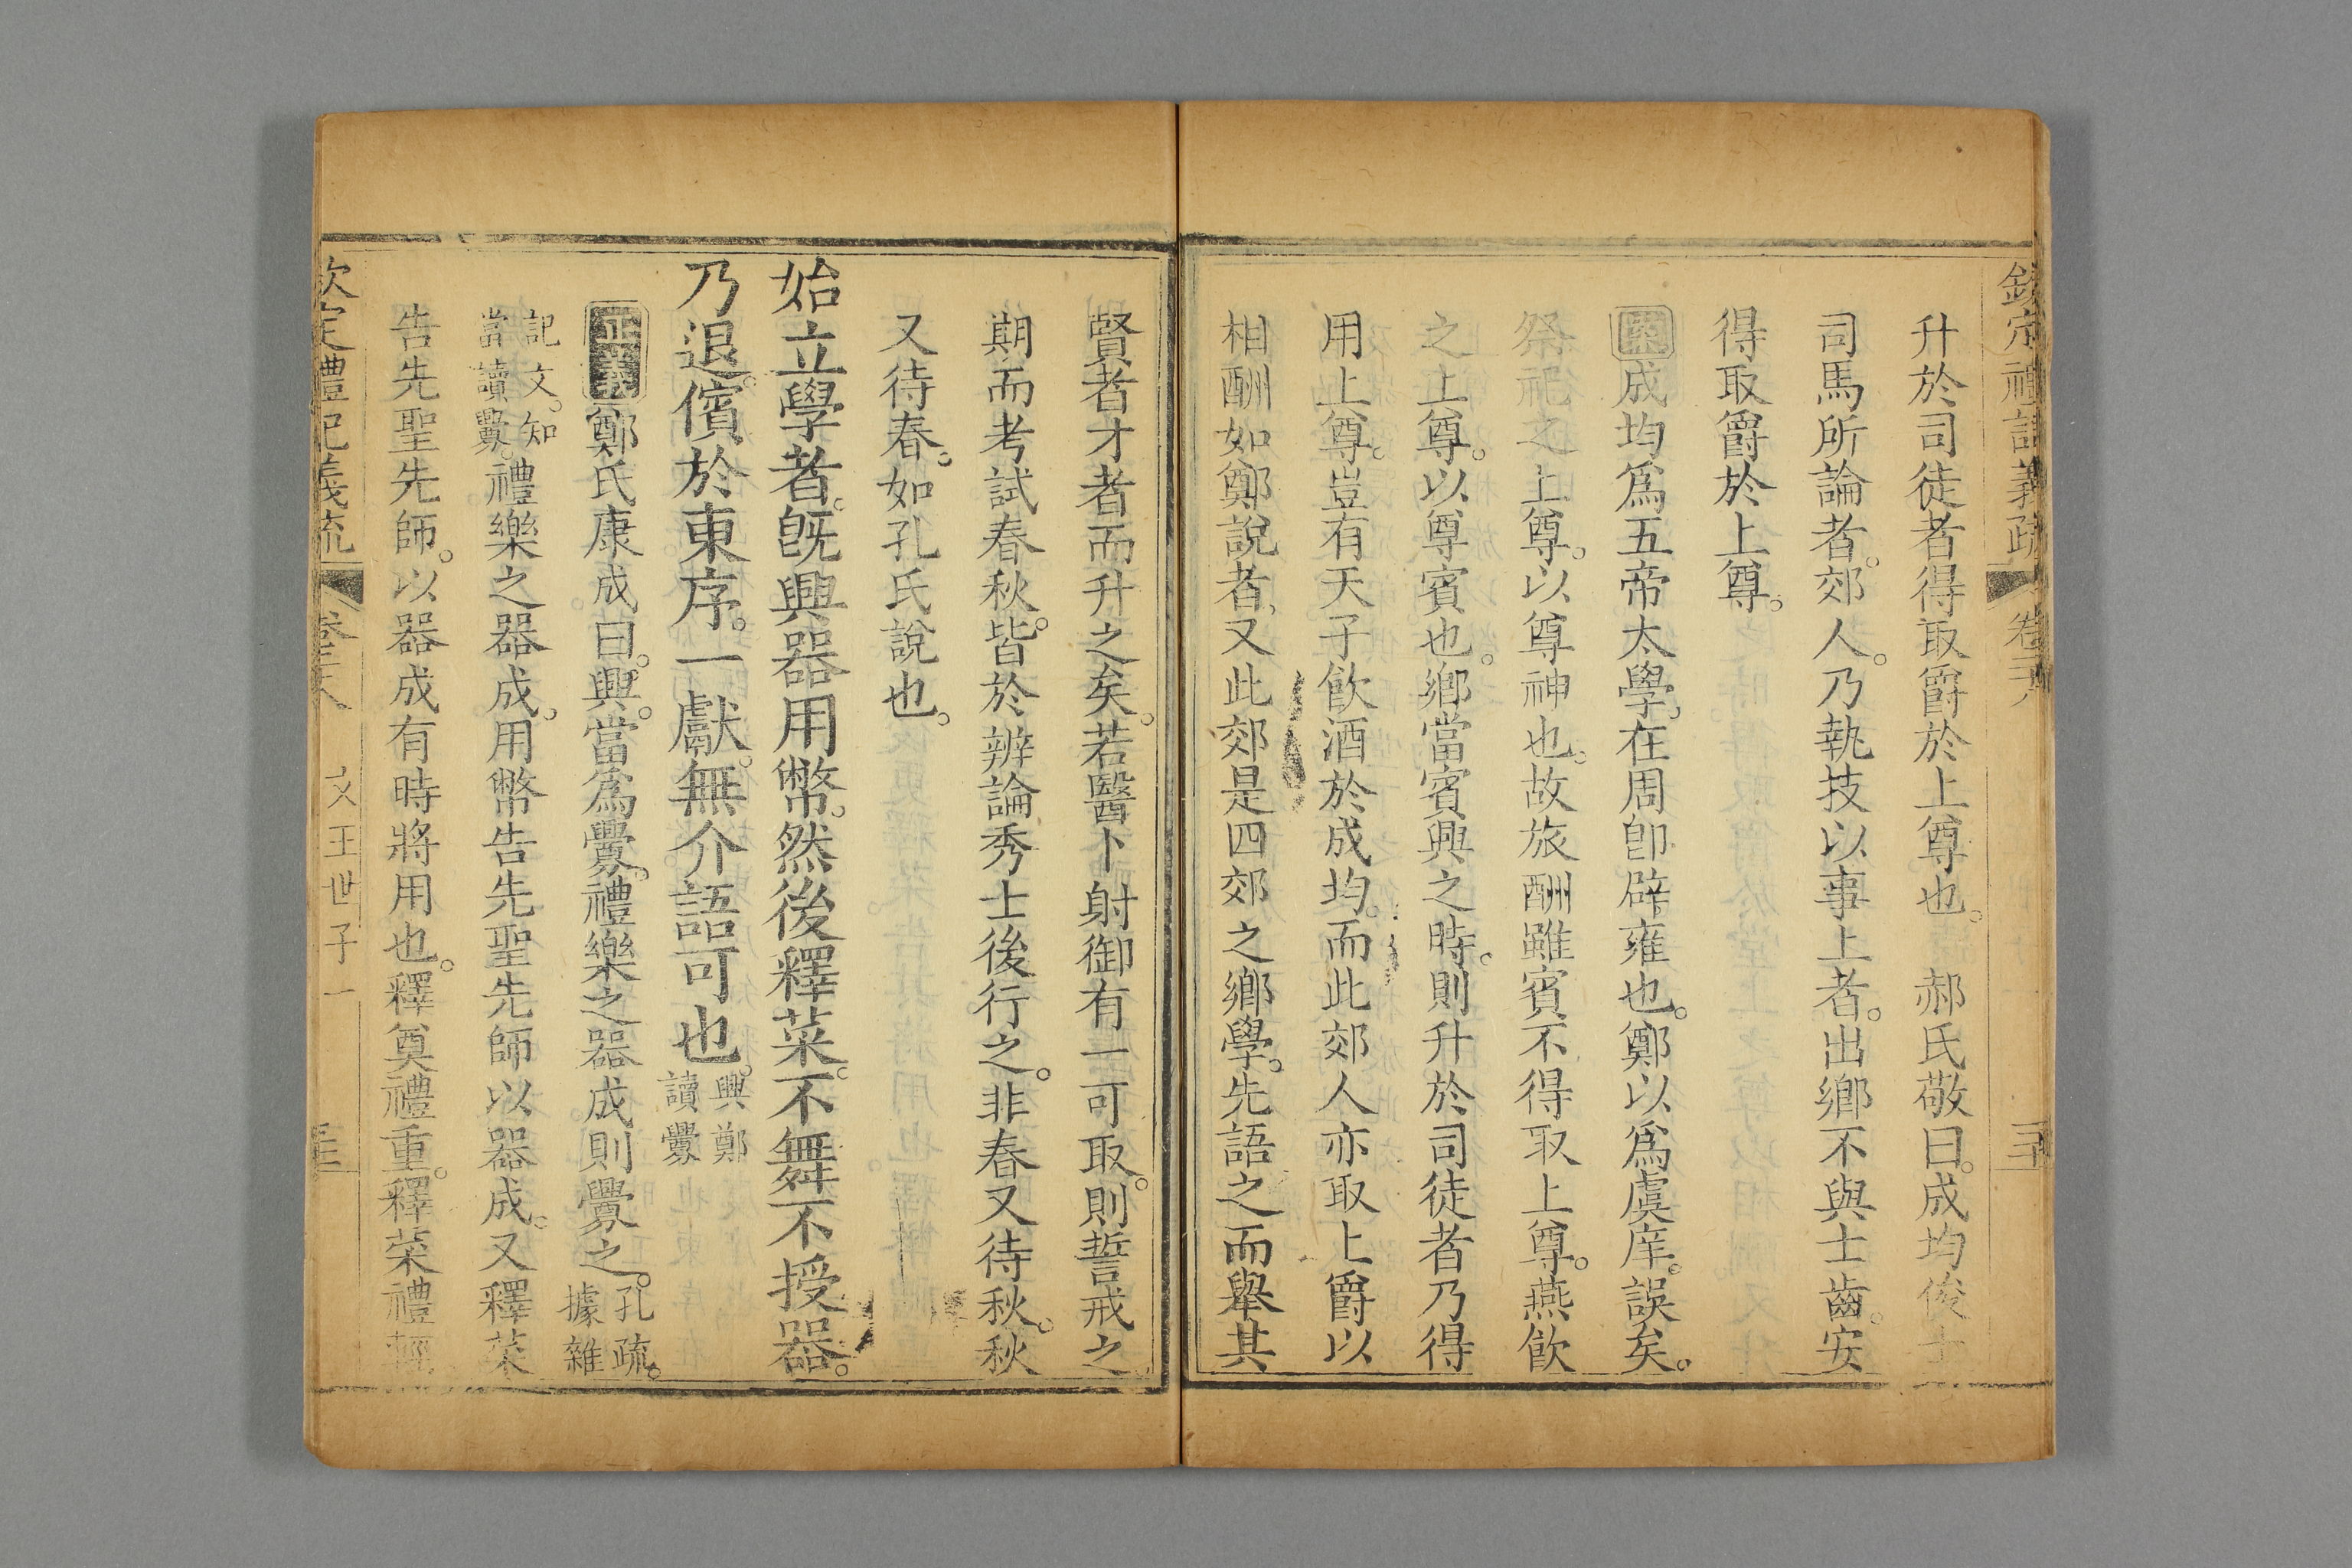 欽定禮記義疏 卷二十八
升於司徒者得取爵於上尊也。 郝氏敬曰。成均俊士
司馬所論者。郊人。乃執技以事上者。出鄉不與士齒。安
得取爵於上尊。
案成均爲五帝太學。在周卽辟雍也。鄭以爲虞庠。誤矣。
祭祀之上尊。以尊神也。故旅酬雖賓不得取上尊。燕飮
之上尊。以尊賓也。鄉當賓興之時。則升於司徒者乃得
用上尊。豈有天子飮酒於成均。而此郊人亦取上爵以
相酬如鄭說者。又此郊是四郊之鄉學。先語之而舉其
賢者才者而升之矣。若醫卜射御有一可取。則誓戒之
期而考試春秋。皆於辨論秀士後行之。非春又待秋。秋
又待春。如孔氏說也。
始立學者。旣興器用幣。然後釋菜。不舞不授器。
乃退。儐於東序。一獻。無介語可也。興鄭讀釁
正義鄭氏康成曰。興。當爲釁。禮樂之器成則釁之。孔疏。據雜
記文。知當讀釁。禮樂之器成。用幣告先聖先師以器成。又釋菜
告先聖先師。以器成有時將用也。釋奠禮重。釋菜禮輕
欽定禮記義疏 卷二十八 文王世子一